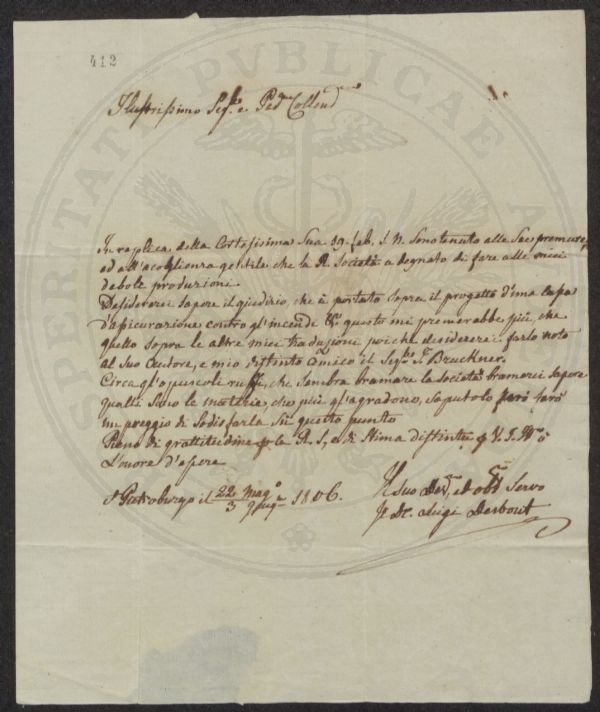 412
Illustrissimo Sigr. e Pad. Collend.
In replica della Cortesissima Sua 19. feb. S. N. Sono tenuto alle Sue premure,
ed all'acoglienza gentile che la R. Società a degnato di fare alle miei
debole produzioni.
Desidererei sapere il giudizio, che è portato sopra il progetto d'una casa
d'assicurazione contro gl'incendi &c. questo mi premerebbe più, che
quello sopra le altre miei traduzioni poichè desidererei farlo noto
al suo Autore, e mio distinto Amico il Sigr. Bruckner.
Circa gl'opuscoli russi, che sembra bramare la Società bramerei sapere
qualli sono le materie, che più gl'agradono, saputolo farò
un preggio di Sodisfarla Su questo punto
Pieno di grattitudine p la R. S., e di Stima distinta p V. S. Ill
L'onore d'essere
S Petroburgo il 22 Mago 1806.
3 giug
Il Suo Dev. ed obb. Servo
Il Dr. Luigi Desbout
PVBLICAE